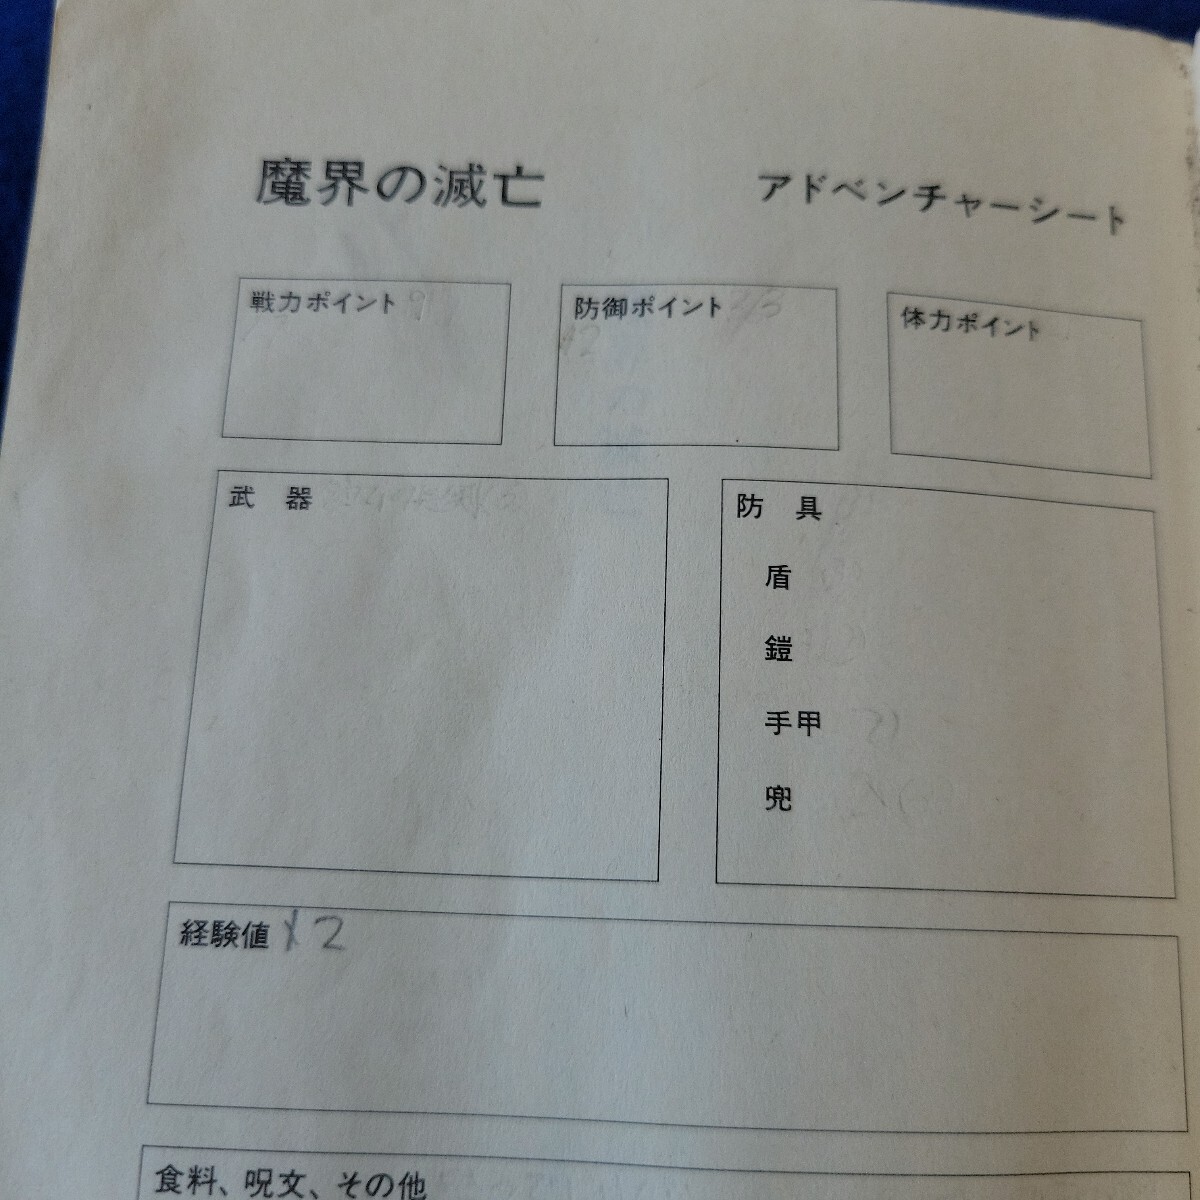 魔界の滅亡 アドベンチャーシート
戦力ポイント 9
防御ポイント
体力ポイント
武 器
防 具
盾
鎧
手甲
兜
経験値 2
食料、呪文、その他